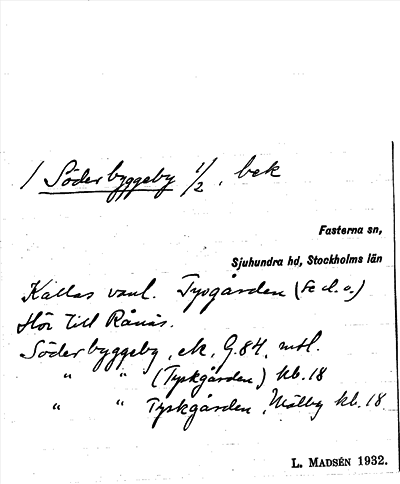 / Söderbyggeby 1/2, bek
Fasterna sn,
Sjuhundra hd, Stockholms län
Kallas vanl. Tysgården (se d. o.)
Hör till Rånäs.
Söderbyggeby, ek, G.84, mtl.
" " (Tyskgården) kb. 18
" " Tyskgården, Mälby kb. 18.
L. MADSÉN 1932.